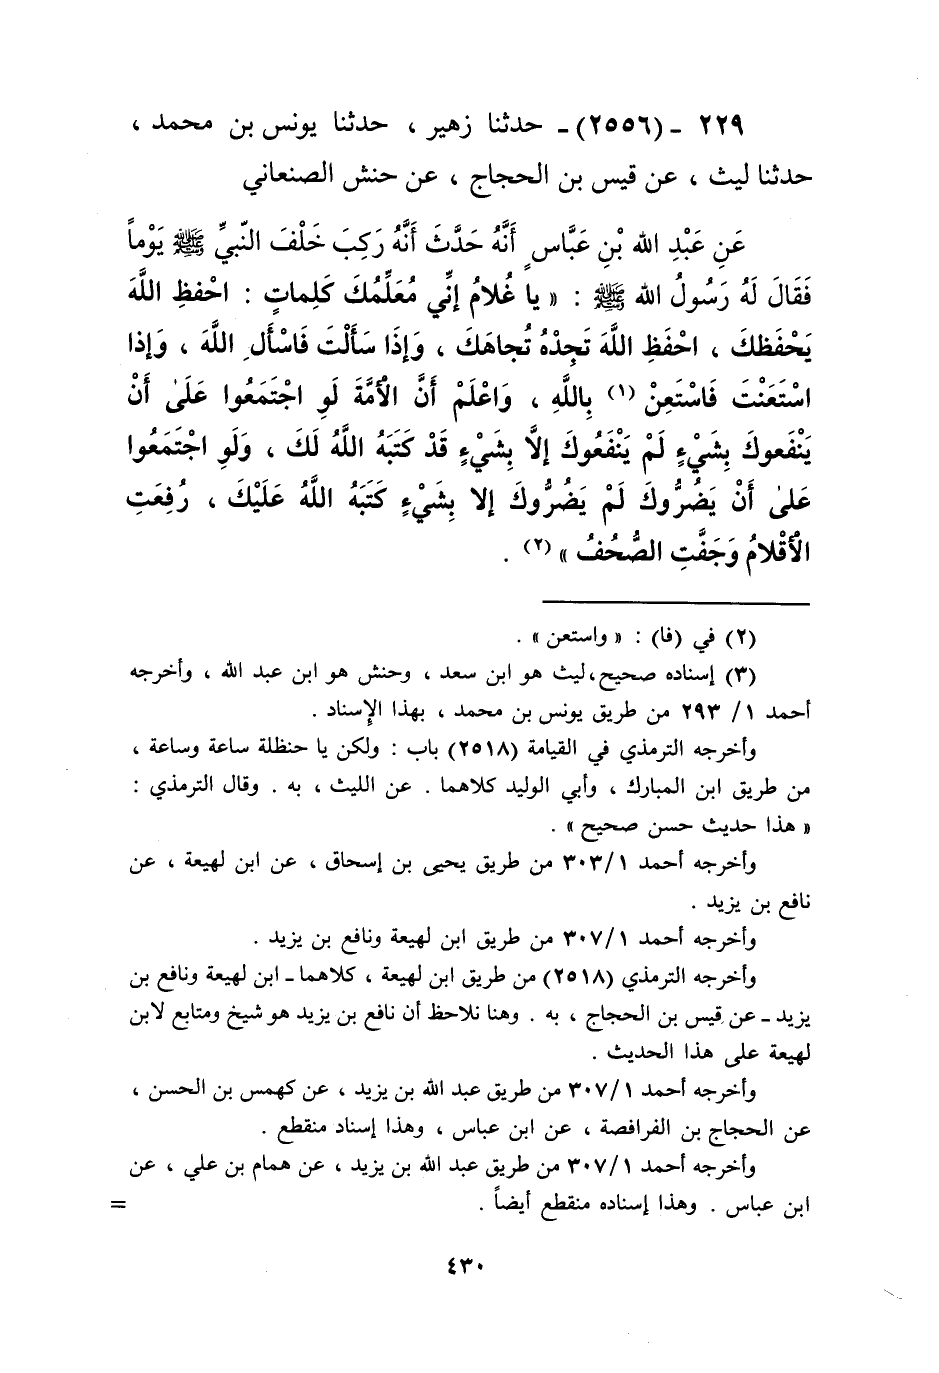 ٢٢٩ - (٢٥٥٦) - حدثنا زهير ، حدثنا يونس بن محمد ،
حدثنا ليث ، عن قيس بن الحجاج ، عن حنش الصنعاني
عَنِ عَبْدِ الله بْنِ عَبَّاسٍ أَنَّهُ حَدَّثَ أَنَّهُ رَكِبَ خَلْفَ النّبيِّ ﷺ يَوْماً
فَقَالَ لَهُ رَسُولُ الله ﷺ : « يا غُلامُ إِنِّي مُعَلِّمُكَ كَلِماتٍ : احْفظِ اللَّهَ
يَحْفَظكَ ، احْفَظِ اللَّهَ تَجِدْهُ تُجاهَكَ ، وَإِذَا سَأَلْتَ فَاسْأَلِ اللَّهَ ، وَإِذا
اسْتَعَنْتَ فَاسْتَعِنْ (١) بِاللَّهِ ، وَاعْلَمْ أَنَّ الْأُمَّةَ لَوِ اجْتَمَعُوا عَلَىٰ أَنْ
يَنْفَعوكَ بِشَيْءٍ لَمْ يَنْفَعُوكَ إِلَّا بِشَيْءٍ قَدْ كَتَبَهُ اللَّهُ لَكَ ، وَلَوِ اجْتَمَعُوا
عَلىٰ أَنْ يَضُرُّوكَ لَمْ يَضُرُّوكَ إلا بِشَيْءٍ كَتَبَهُ اللَّهُ عَلَيْكَ ، رُفِعَتِ
الْأَقْلامُ وَجَفَّتِ الصُّحُفُ » (٢) .
(٢) في (فا) : « واستعن » .
(٣) إسناده صحيح، ليث هو ابن سعد ، وحنش هو ابن عبد الله ، وأخرجه
أحمد ١/ ٢٩٣ من طريق يونس بن محمد ، بهذا الإسناد .
وأخرجه الترمذي في القيامة (٢٥١٨) باب : ولكن يا حنظلة ساعة وساعة ،
من طريق ابن المبارك ، وأبي الوليد كلاهما . عن الليث ، به . وقال الترمذي :
« هذا حديث حسن صحيح » .
وأخرجه أحمد ٣٠٣/١ من طريق يحيى بن إسحاق ، عن ابن لهيعة ، عن
نافع بن يزيد .
وأخرجه أحمد ٣٠٧/١ من طريق ابن لهيعة ونافع بن يزيد .
وأخرجه الترمذي (٢٥١٨) من طريق ابن لهيعة ، كلاهما - ابن لهيعة ونافع بن
يزيد - عن قيس بن الحجاج ، به . وهنا نلاحظ أن نافع بن يزيد هو شيخ ومتابع لابن
لهيعة على هذا الحديث .
وأخرجه أحمد ٣٠٧/١ من طريق عبد الله بن يزيد ، عن كهمس بن الحسن ،
عن الحجاج بن الفرافصة ، عن ابن عباس ، وهذا إسناد منقطع .
وأخرجه أحمد ٣٠٧/١ من طريق عبد الله بن يزيد ، عن همام بن علي ، عن
ابن عباس . وهذا إسناده منقطع أيضاً . =
٤٣٠